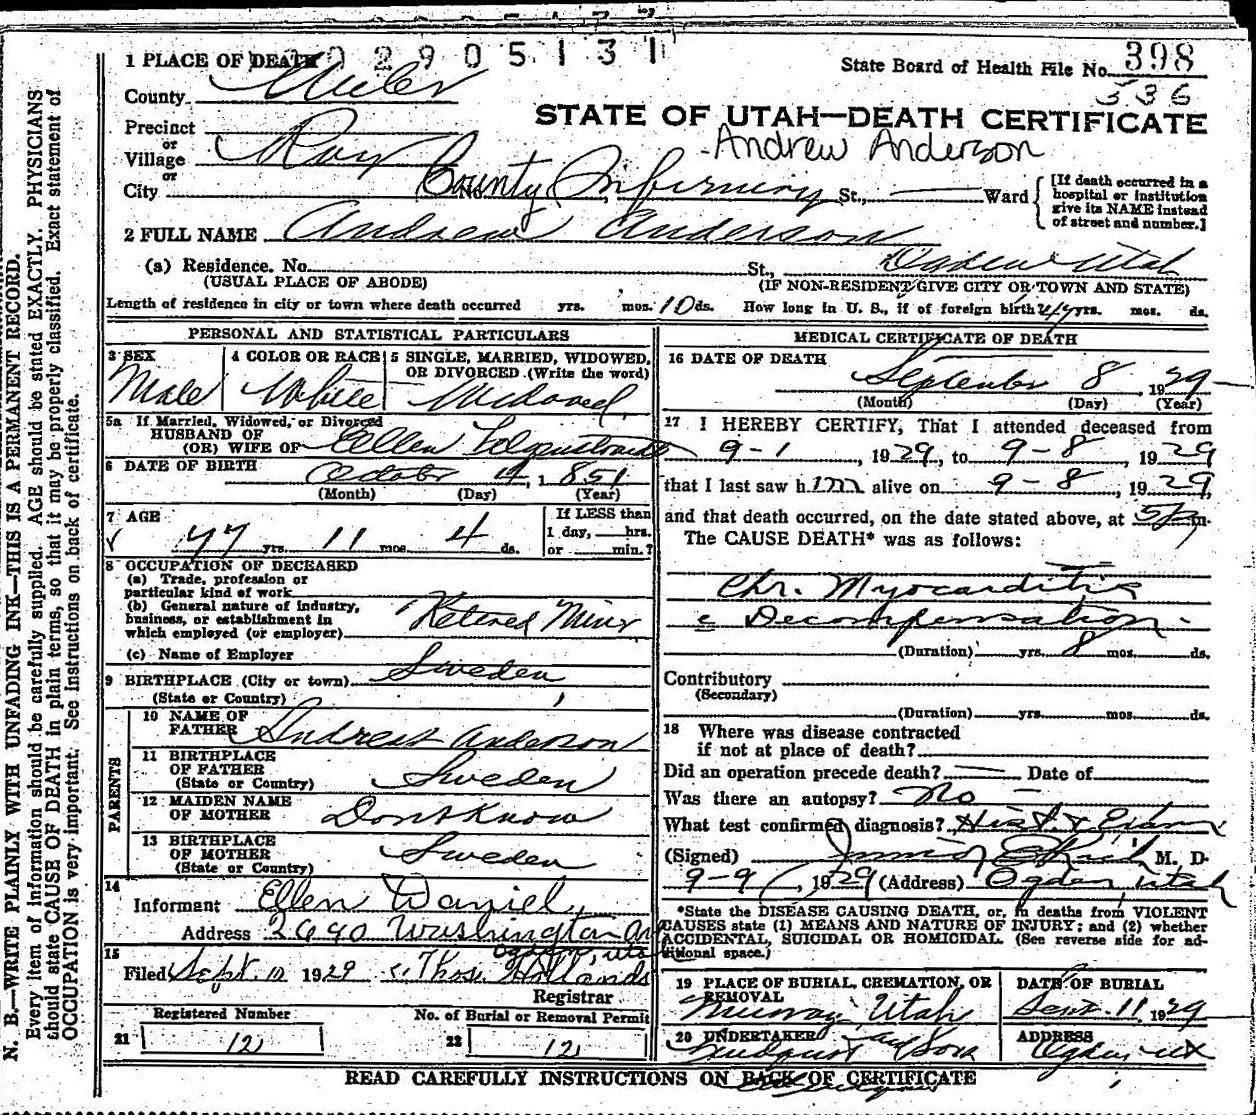 N. B.—WRITE PLAINLY WITH UNFADING INK—THIS IS A PERMANENT RECORD.
Every item of information should be carefully supplied. AGE should be stated EXACTLY. PHYSICIANS
should state CAUSE OF DEATH in plain terms, so that it may be properly classified. Exact statement of
OCCUPATION is very important. See instructions on back of certificate.
2905131
1 PLACE OF DEATH
State Board of Health File No. 398
County
536
STATE OF UTAH—DEATH CERTIFICATE
Precinct
or
Andrew Anderson
Village Roy
or
City County Infirmary St., Ward
[If death occurred in a
hospital or institution
give its NAME instead
of street and number.]
2 FULL NAME Andrew Anderson
(a) Residence. No. St., Ogden Utah
(USUAL PLACE OF ABODE) (IF NON-RESIDENT GIVE CITY OR TOWN AND STATE)
Length of residence in city or town where death occurred yrs. mos. 10 ds. How long in U. S., if of foreign birth yrs. mos. ds.
PERSONAL AND STATISTICAL PARTICULARS
3 SEX Male
4 COLOR OR RACE White
5 SINGLE, MARRIED, WIDOWED,
OR DIVORCED (Write the word)
5a If Married, Widowed, or Divorced
HUSBAND OF
(OR) WIFE OF Ellen
6 DATE OF BIRTH October 4, 1851
(Month) (Day) (Year)
7 AGE 77 yrs. 11 mos. 4 ds.
If LESS than
1 day, hrs.
or min.?
8 OCCUPATION OF DECEASED
(a) Trade, profession or
particular kind of work
(b) General nature of industry,
business, or establishment in
which employed (or employer) Retired Miner
(c) Name of Employer
9 BIRTHPLACE (City or town) Sweden
(State or Country)
PARENTS
10 NAME OF
FATHER Andreas Anderson
11 BIRTHPLACE
OF FATHER Sweden
(State or Country)
12 MAIDEN NAME
OF MOTHER Dont Know
13 BIRTHPLACE
OF MOTHER Sweden
(State or Country)
14
Informant Ellen Daniel
Address 2690 Washington Av
Ogden, Utah
15
Filed Sept. 12 1929 Thos. Hollands
Registrar
Registered Number
No. of Burial or Removal Permit
21 12
22 12
MEDICAL CERTIFICATE OF DEATH
16 DATE OF DEATH
September 8, 1929
(Month) (Day) (Year)
17 I HEREBY CERTIFY, That I attended deceased from
9-1, 1929, to 9-8, 1929
that I last saw him alive on 9-8, 1929,
and that death occurred, on the date stated above, at m.
The CAUSE DEATH* was as follows:
Chr. Myocarditis
c Decompensation
(Duration) yrs. 8 mos. ds.
Contributory
(Secondary)
(Duration) yrs. mos. ds.
18 Where was disease contracted
if not at place of death?
Did an operation precede death? — Date of
Was there an autopsy? No
What test confirmed diagnosis? Hist. & Exam
(Signed) M. D.
9-9, 1929 (Address) Ogden, Utah
*State the DISEASE CAUSING DEATH, or, in deaths from VIOLENT
CAUSES state (1) MEANS AND NATURE OF INJURY; and (2) whether
ACCIDENTAL, SUICIDAL OR HOMICIDAL. (See reverse side for ad-
ditional space.)
19 PLACE OF BURIAL, CREMATION, OR
REMOVAL
Murray, Utah
DATE OF BURIAL
Sept. 11 1929
20 UNDERTAKER
Lindquist and Sons
ADDRESS
Ogden Ut
READ CAREFULLY INSTRUCTIONS ON BACK OF CERTIFICATE